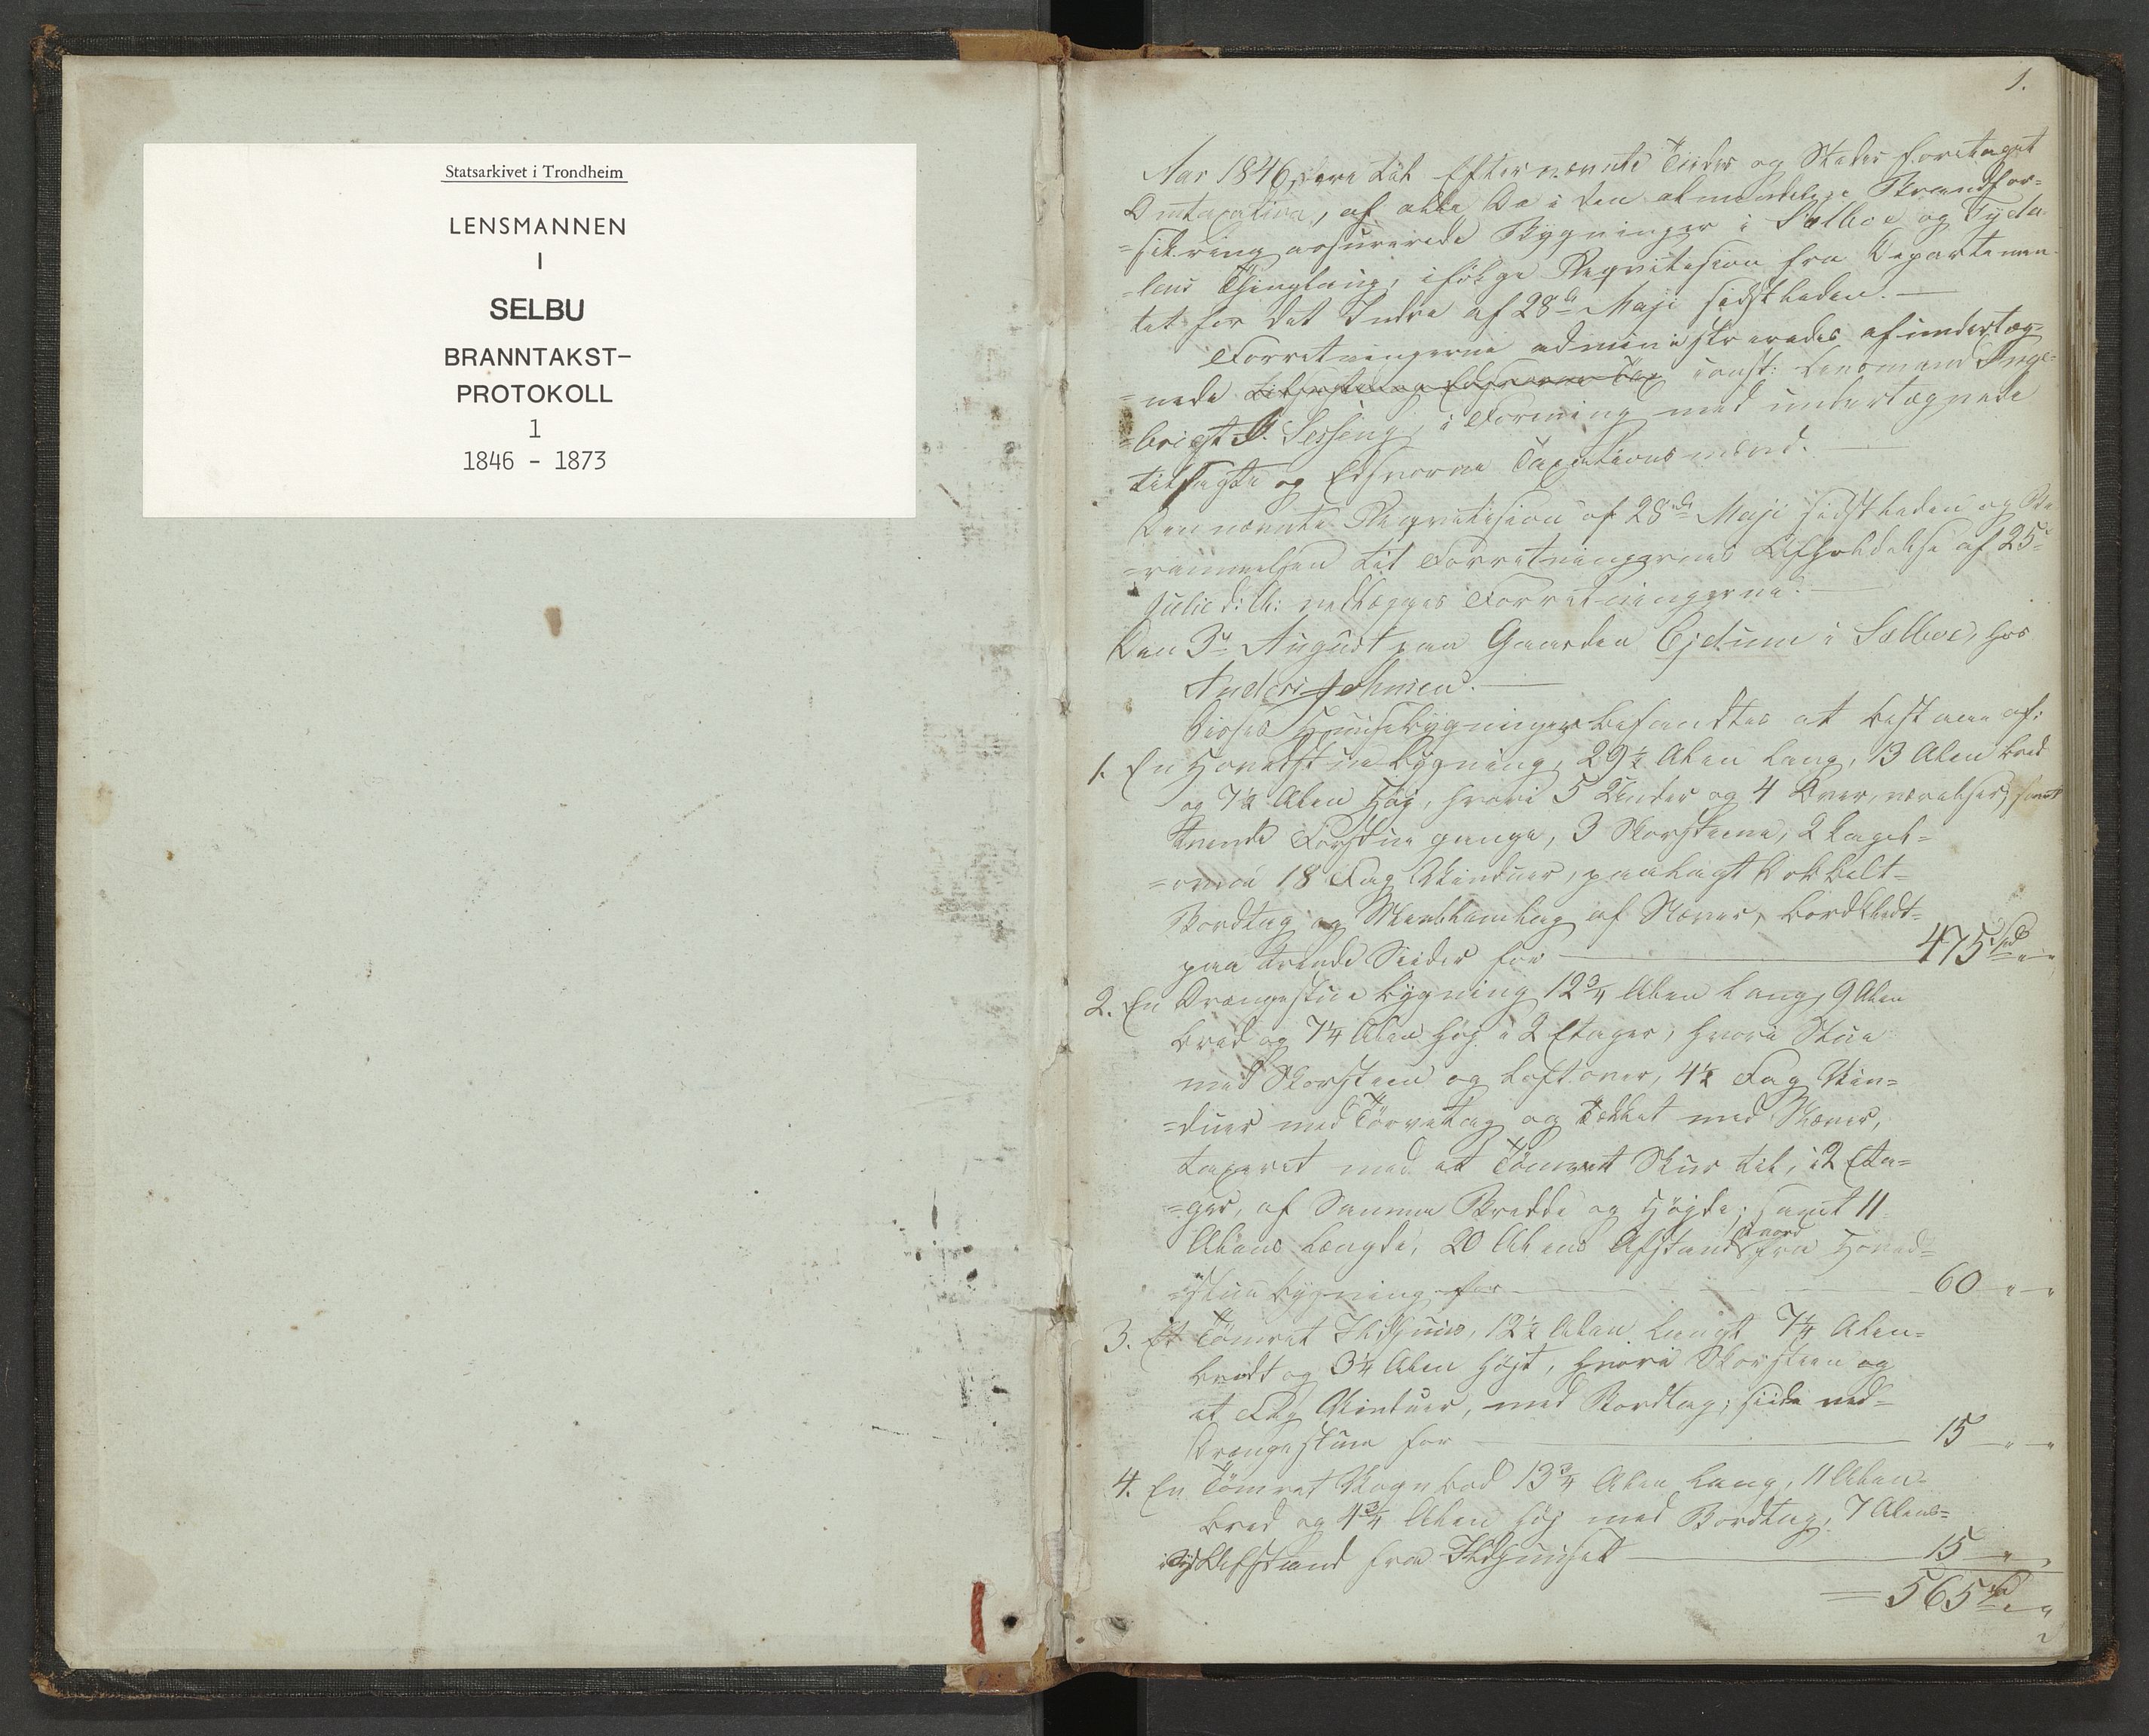 Statsarkivet i Trondheim
LENSMANNEN
I
SELBU
BRANNTAKST-
PROTOKOLL
1
1846 - 1873
1.
Aar 1846, blev til Efternævnte Tider og Steder foretaget
Omtaxation, af alle de i den almindelige Brandfor=
=sikring assurerede Bygninger i Sælboe og Tyda-
=lens Thinglaug, ifølge Reqvisition fra Departemen-
tet for det Indre af 28de Maji sidstleden. —
Forretningerne administreredes af undertæg=
=nede const: Lensmand Inge=
=brigt Sesseng, i Forening med undertægnede
tilsagte og Edsvorne Taxationsmænd. —
Den nævnte Reqvisition af 28de Maji sidstleden og Be
=rammelsen til Forretningernes Afholdelse af 25=
Julie d: A: vedlægges Forretningerne. —
Den 3die August paa Gaarden Ejdum i Sælboe, hos
Anders Johnsen. —
Disses Huusebygninger befandtes at bestaae af:
1. En Hovedstuebygning, 29½ Alen lang, 13 Alen bred
og 7½ Alen Høj, hvori 5 Under og 4 Over, værelser, samt
tvende Forstuegange, 3 Skorsteene, 2 Kagel=
=ovne 18 Fag Vinduer, paalagt dobbelt=
Bordtag og af Næver, bordklædt=
paa trende Sider for — 475 Spd " "
2. En Drængestuebygning 12¾ Alen lang, 9 Alen
bred og 7¼ Alen høj i 2 Etager, hvori Stue
med Skorsteen og Loft over, 4½ Fag Vin=
=duer med Torvetag og Tækket med Næver,
taxeret med et Tømret Skur til, i 2 Eta=
=ger, af Samme Bredde og Højde; samt 11
Alens Længde, 20 Alens Afstand i nord fra Hoved=
=stuebygning for — 60 " "
3. Et Tømret Ildhuus, 12½ Alen langt 7¼ Alen=
bredt og 3¼ Alen højt, hvori Skorsteen og
et Fag Vinduer, med Bordtag, siide ved=
Drængestuen for — 15 " "
4. En Tømret Vognbod 13¾ Alen lang, 11 Alen=
bred og 4¾ Alen høj med Bordtag, 7 Alens=
Afstand fra Ildhuuset — 15 " "
= 565 Spd " "